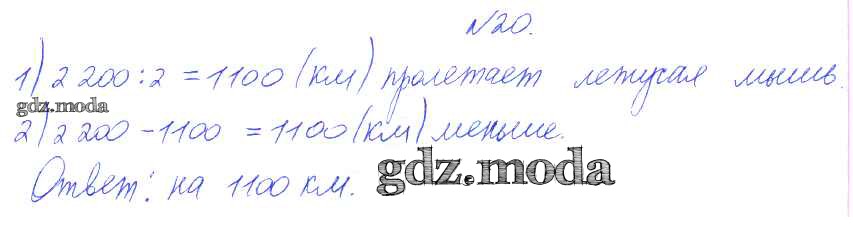 №20.
1) 2 200 : 2 = 1100 (км) пролетает летучая мышь.
gdz.moda
2) 2 200 - 1100 = 1100 (км) меньше.
Ответ: на 1100 км.
gdz.moda